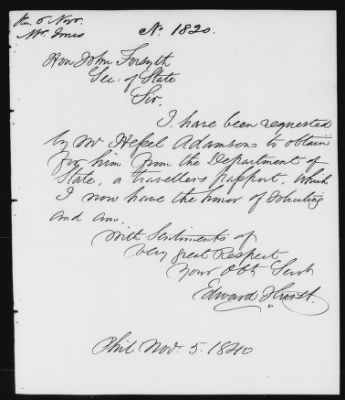 Rec. 5 Nov.
Mr. Jones
No. 1820.
Hon John Forsyth
Sec: of State
Sir,
I have been requested
by Mr Adamsons to obtain
for him from the Department of
State, a travellers passport, which
I now have the honor of soliciting
and am.
With Sentiments of
very great Respect
Your Obt Servt
Edward Hurst.
Phil Nov. 5. 1840